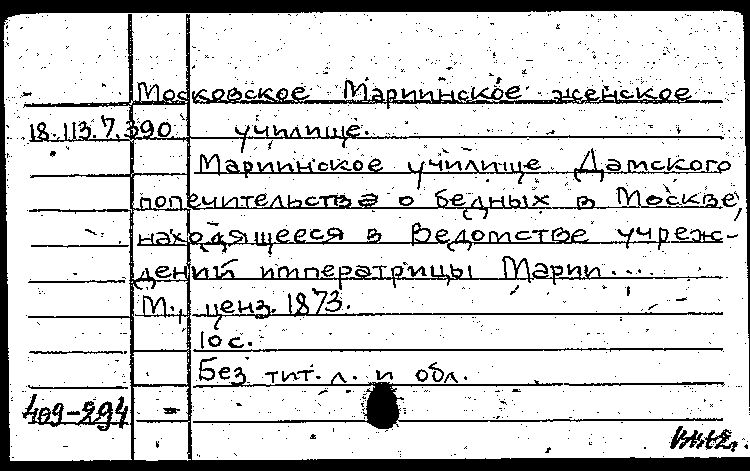 Московское Мариинское женское
18.113.7.390 училище.
Мариинское училище Дамского
попечительства о бедных в Москве,
находящееся в Ведомстве учреж-
дений императрицы Марии...
М., ценз. 1873.
10 с.
Без тит. л. и обл.
409-294 -